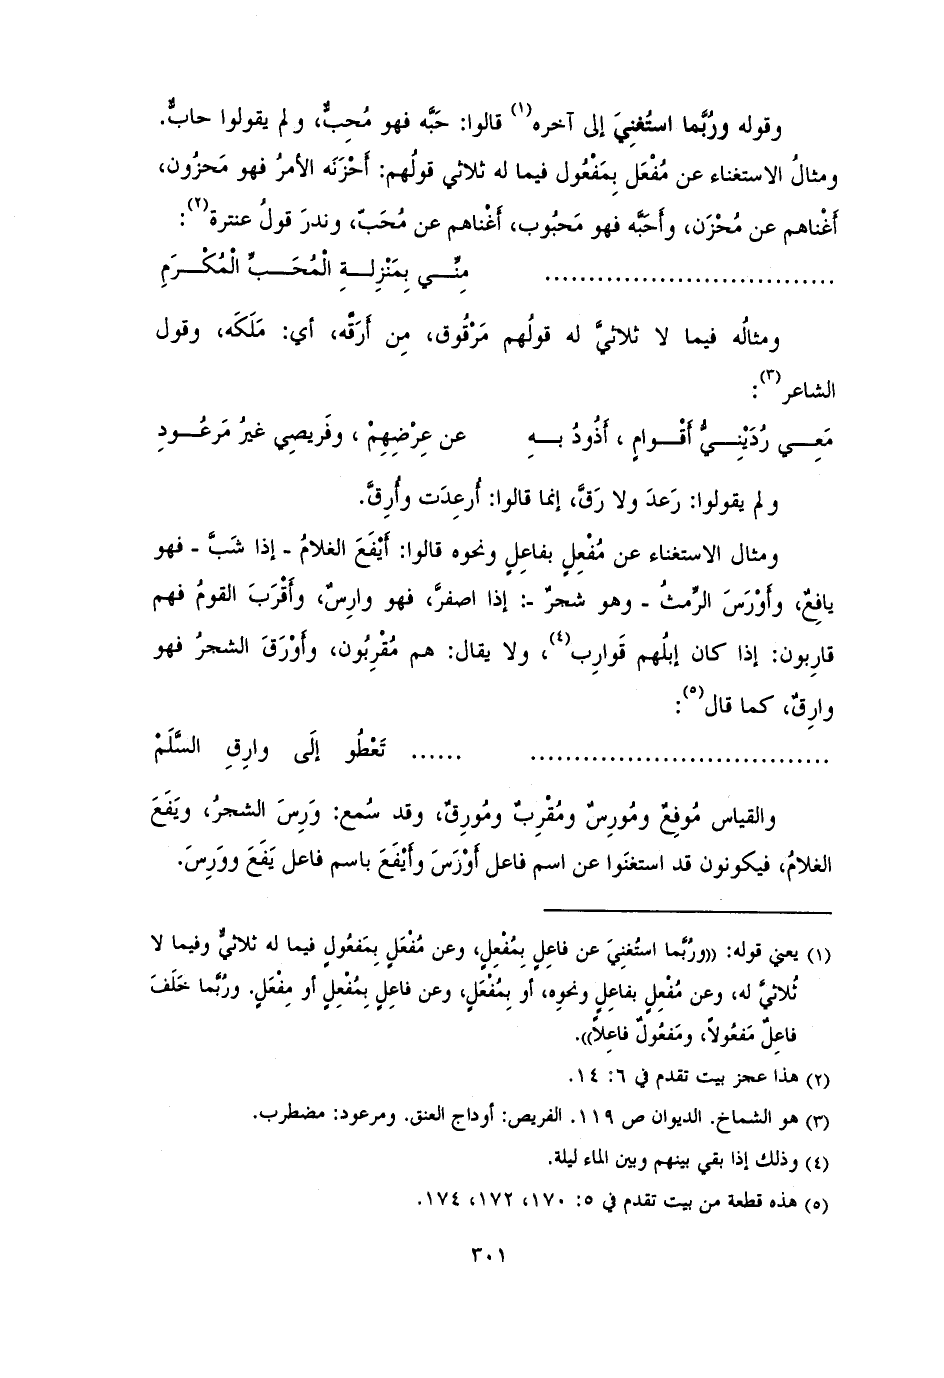 وقوله ورُبَّما استُغنِيَ إلى آخره(١) قالوا: حَبَّه فهو مُحِبٌّ، ولم يقولوا حابٌّ.
ومثالُ الاستغناء عن مُفْعَل بِمَفْعُول فيما له ثلاثي قولُهم: أَحْزَنَه الأمرُ فهو مَحزُون،
أَغْناهم عن مُحْزَن، وأَحَبَّه فهو مَحبُوب، أَغْناهم عن مُحَبّ، وندرَ قولُ عنترة(٢):
................................ مِنِّـــي بِمَنْزِلــةِ الْمُحَــبِّ الْمُكْــرَمِ
ومثالُه فيما لا ثلاثيَّ له قولُهم مَرْقُوق، مِن أَرَقَّه، أي: مَلَكَه، وقول
الشاعر(٣):
مَعِـــي رُدَيْنِـــيُّ أَقْــوامٍ ، أَذُودُ بــهِ عن عِرْضِهِمْ ، وفَريصِي غيرُ مَرعُــودِ
ولم يقولوا: رَعدَ ولا رَقَّ، إنما قالوا: أُرعِدَت وأُرِقَّ.
ومثال الاستغناء عن مُفْعِلٍ بفاعِلٍ ونحوه قالوا: أَيْفَعَ الغلامُ ـ إذا شَبَّ ـ فهو
يافِعٌ، وأَوْرَسَ الرِّمثُ ـ وهو شجرٌ ـ: إذا اصفرَّ، فهو وارِسٌ، وأَقْرَبَ القومُ فهم
قارِبون: إذا كان إبلُهم قَوارِب(٤)، ولا يقال: هم مُقْرِبُون، وأَوْرَقَ الشجرُ فهو
وارِقٌ، كما قال(٥):
................................. ...... تَعْطُو إِلَى وارِقِ السَّلَمْ
والقياس مُوفِعٌ ومُورِسٌ ومُقْرِبٌ ومُورِقٌ، وقد سُمع: وَرِسَ الشجرُ، ويَفَعَ
الغلامُ، فيكونون قد استغنَوا عن اسم فاعل أَوْرَسَ وأَيْفَعَ باسم فاعل يَفَعَ ووَرِسَ.
(١) يعني قوله: ((ورُبَّما استُغنِيَ عن فاعِلٍ بِمُفْعِلٍ، وعن مُفْعَلٍ بِمَفعُولٍ فيما له ثلاثيٌّ وفيما لا
ثُلاثيَّ له، وعن مُفْعِلٍ بفاعِلٍ ونحوِه، أو بِمُفْعَلٍ، وعن فاعِلٍ بِمُفْعِلٍ أو مِفْعَلٍ. ورُبَّما خَلَفَ
فاعِلٌ مَفعُولاً، ومَفعُولٌ فاعِلاً)).
(٢) هذا عجز بيت تقدم في ٦: ١٤.
(٣) هو الشماخ. الديوان ص ١١٩. الفريص: أوداج العنق. ومرعود: مضطرب.
(٤) وذلك إذا بقي بينهم وبين الماء ليلة.
(٥) هذه قطعة من بيت تقدم في ٥: ١٧٠، ١٧٢، ١٧٤.
٣٠١